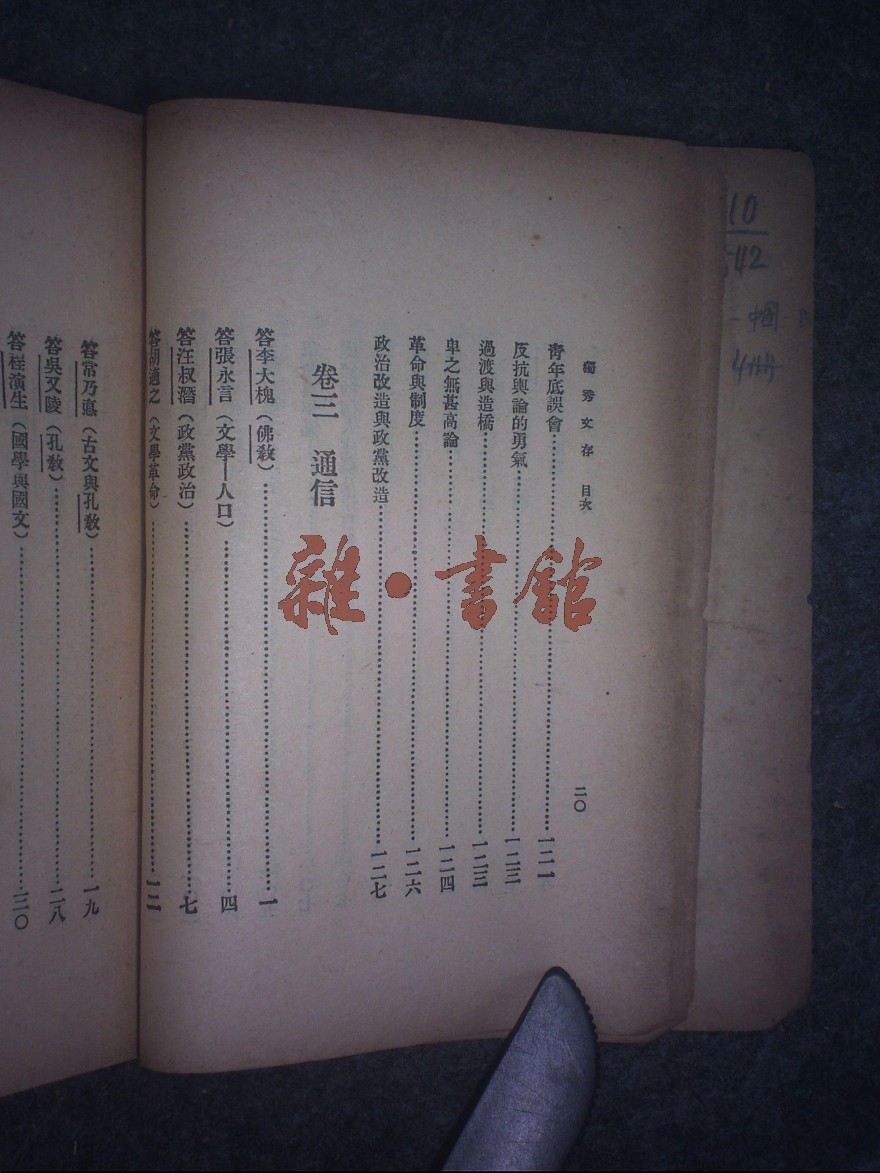 獨秀文存 目次 二〇
靑年底誤會……一二一
反抗輿論的勇氣……一二三
過渡與造橋……一二三
卑之無甚高論……一二四
革命與制度……一二六
政治改造與政黨改造……一二七
卷三 通信
答李大槐（佛敎）……一
答張永言（文學—人口）……四
答汪叔潛（政黨政治）……七
答胡適之（文學革命）……一二
答常乃悳（古文與孔敎）……一九
答吳又陵（孔敎）……二八
答桂演生（國學與國文）……三〇
雜·書館
10
542
中國
4冊